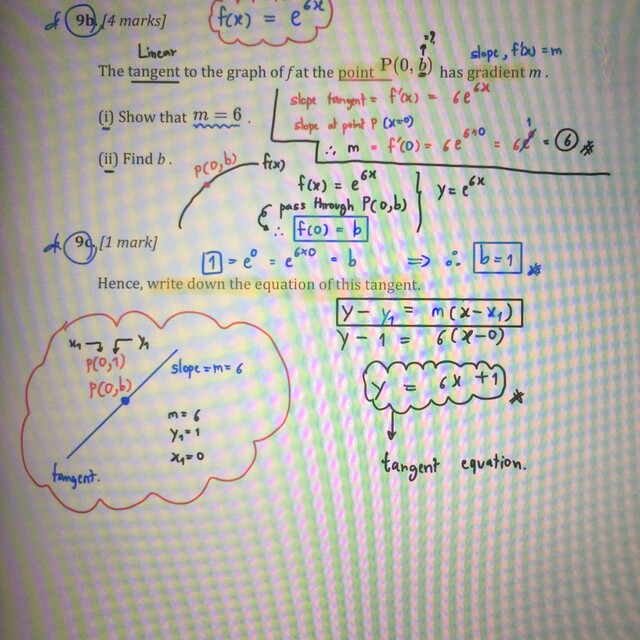 9b. [4 marks]
f(x) = e^6x
Linear
=?
slope, f'(x) = m
The tangent to the graph of f at the point P(0, b) has gradient m.
(i) Show that m = 6.
slope tangent = f'(x) = 6e^6x
slope at point P (x=0)
∴ m = f'(0) = 6e^6×0 = 6e^0 = 6
1
(ii) Find b.
P(0,b)
f(x)
f(x) = e^6x
y = e^6x
pass through P(0,b)
∴ f(0) = b
9c. [1 mark]
1 = e^0 = e^6×0 = b ⇒ ∴ b = 1
Hence, write down the equation of this tangent.
y - y₁ = m(x-x₁)
y - 1 = 6(x-0)
y = 6x + 1
tangent equation.
x₁ y₁
P(0,1)
P(0,b)
slope = m = 6
m = 6
y₁ = 1
x₁ = 0
tangent.